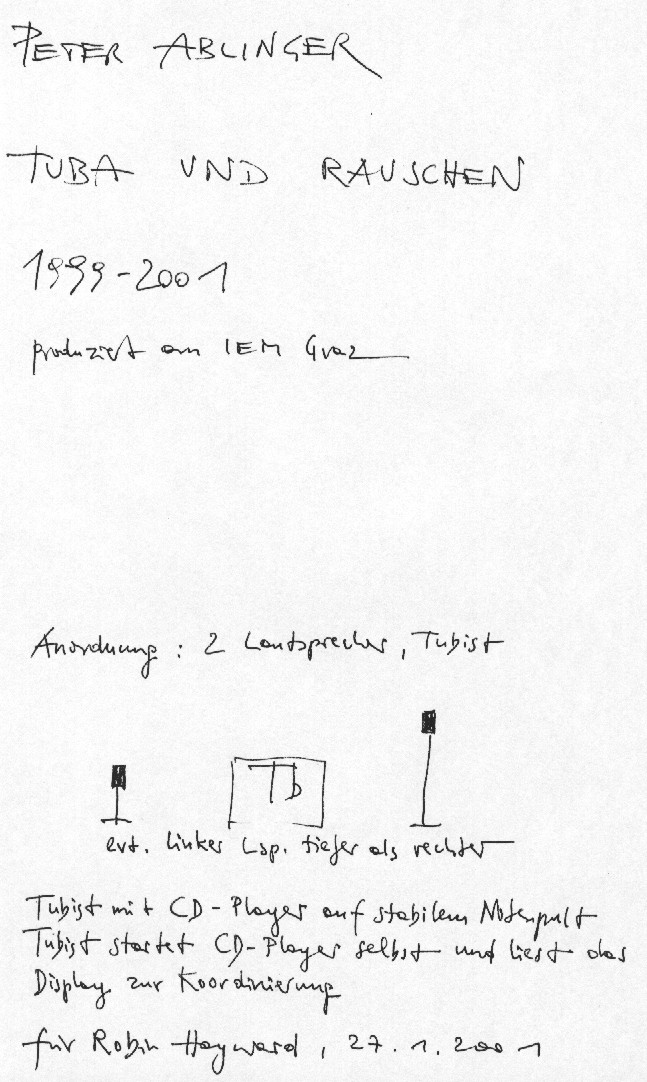 PETER ABLINGER
TUBA UND RAUSCHEN
1999-2001
produziert am IEM Graz
Anordnung : 2 Lautsprecher, Tubist
Tb
evt. linker Lsp. tiefer als rechter
Tubist mit CD-Player auf stabilem Notenpult
Tubist startet CD-Player selbst und liest das
Display zur Koordinierung
für Robin Hayward, 27.1.2001